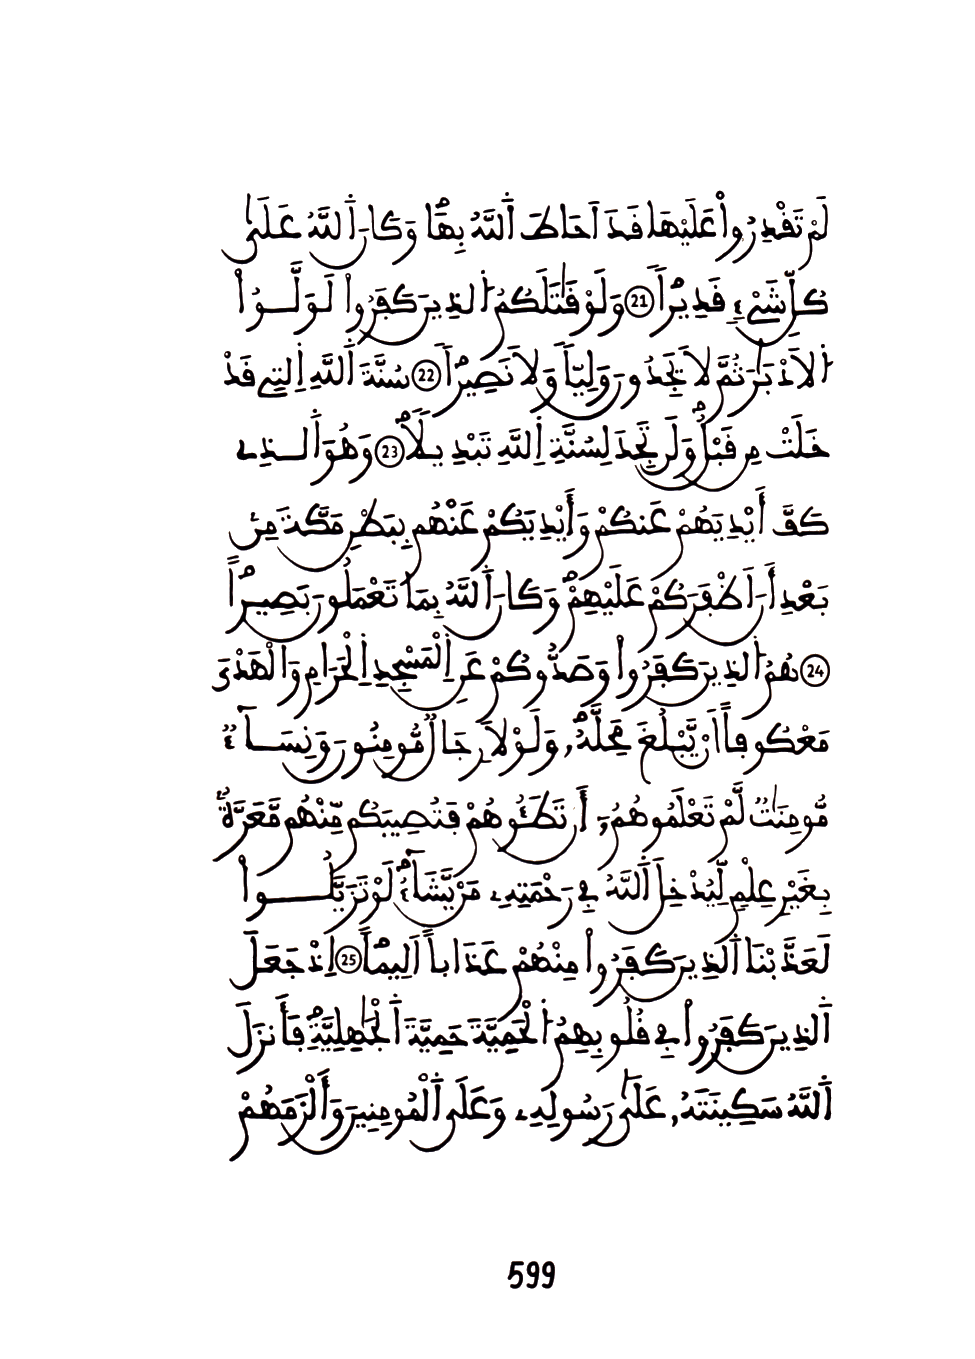 لَمْ تَقْدِرُواْ عَلَيْهَا قَدَ اَحَاطَ اَ۬للَّهُ بِهَاۖ وَكَانَ اَ۬للَّهُ عَلَيٰ
كُلِّ شَےْءٖ قَدِيراٗۖ 21 وَلَوْ قَٰتَلَكُمُ اُ۬لذِينَ كَفَرُواْ لَوَلَّوُاْ
اُ۬لَادْبَٰرَ ثُمَّ لَا يَجِدُونَ وَلِيّاٗ وَلَا نَصِيراٗۖ 22 سُنَّةَ اَ۬للَّهِ اِ۬لتِے قَدْ
خَلَتْ مِن قَبْلُۖ وَلَن تَجِدَ لِسُنَّةِ اِ۬للَّهِ تَبْدِيلاٗۖ 23 وَهُوَ اَ۬لذِے
كَفَّ أَيْدِيَهُمْ عَنكُمْ وَأَيْدِيَكُمْ عَنْهُم بِبَطْنِ مَكَّةَ مِنۢ
بَعْدِ أَنَ اَظْفَرَكُمْ عَلَيْهِمْۖ وَكَانَ اَ۬للَّهُ بِمَا تَعْمَلُونَ بَصِيراًۖ
24 هُمُ اُ۬لذِينَ كَفَرُواْ وَصَدُّوكُمْ عَنِ اِ۬لْمَسْجِدِ اِ۬لْحَرَامِ وَالْهَدْيَ
مَعْكُوفاً اَنْ يَّبْلُغَ مَحِلَّهُۥۖ وَلَوْلَا رِجَالٞ مُّومِنُونَ وَنِسَآءٞ
مُّومِنَٰتٞ لَّمْ تَعْلَمُوهُمُۥٓ أَن تَطَـُٔوهُمْ فَتُصِيبَكُم مِّنْهُم مَّعَرَّةُۢ
بِغَيْرِ عِلْمٖ لِّيُدْخِلَ اَ۬للَّهُ فِے رَحْمَتِهِۦ مَنْ يَّشَآءُۖ لَوْ تَزَيَّلُواْ
لَعَذَّبْنَا اَ۬لذِينَ كَفَرُواْ مِنْهُمْ عَذَاباً اَلِيماًۖ 25 اِذْ جَعَلَ
اَ۬لذِينَ كَفَرُواْ فِے قُلُوبِهِمُ اُ۬لْحَمِيَّةَ حَمِيَّةَ اَ۬لْجَٰهِلِيَّةِۖ فَأَنزَلَ
اَ۬للَّهُ سَكِينَتَهُۥ عَلَيٰ رَسُولِهِۦ وَعَلَي اَ۬لْمُومِنِينَ وَأَلْزَمَهُمْ
599